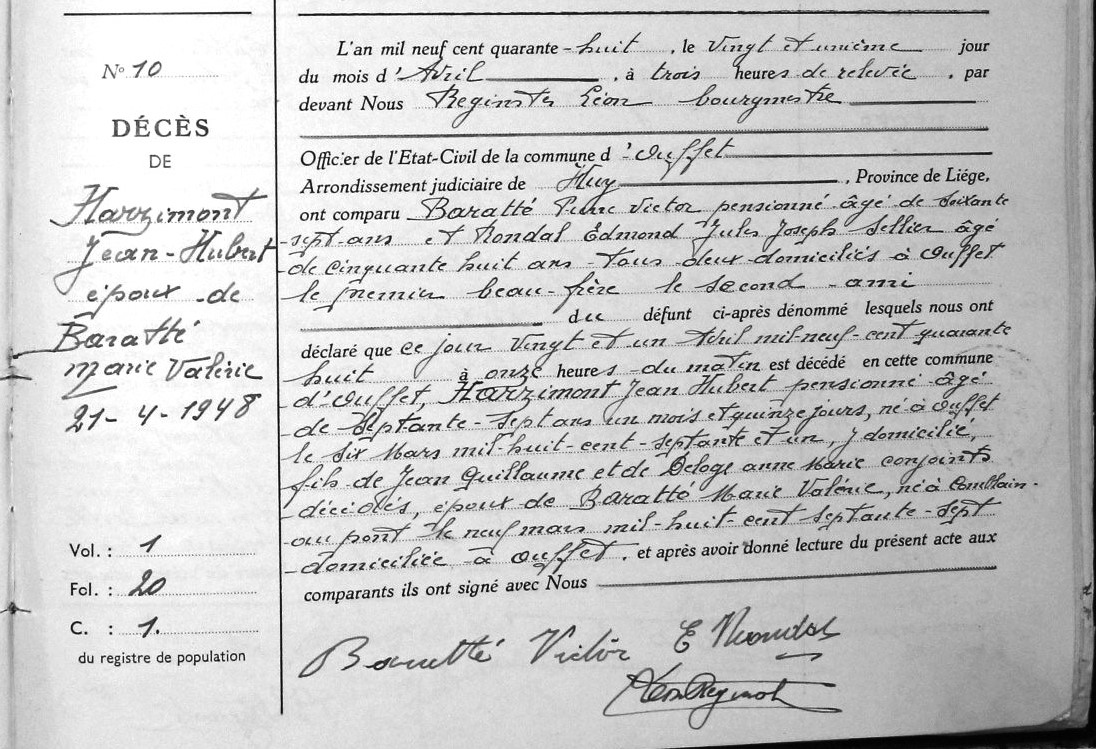 N° 10
DÉCÈS
DE
Harzimont
Jean-Hubert
époux de
Baratté
Marie Valérie
21-4-1948
Vol. : 1
Fol. : 20
C. : 1.
du registre de population
L'an mil neuf cent quarante-huit, le vingt et unième jour
du mois d'Avril, à trois heures de relevée, par
devant Nous Reginster Léon bourgmestre
Officier de l'Etat-Civil de la commune d'Ouffet
Arrondissement judiciaire de Huy, Province de Liége,
ont comparu Baratté Pierre Victor pensionné âgé de soixante
sept ans et Rondal Edmond Jules Joseph Sellier âgé
de cinquante huit ans tous deux domiciliés à Ouffet
le premier beau-frère le second ami
du défunt ci-après dénommé lesquels nous ont
déclaré que ce jour vingt et un Avril mil-neuf-cent quarante
huit à onze heures du matin est décédé en cette commune
d'Ouffet, Harzimont Jean Hubert pensionné âgé
de septante-sept ans un mois et quinze jours, né à Ouffet
le six Mars mil-huit-cent-septante et un, y domicilié,
fils de Jean Guillaume et de Deloge Anne Marie conjoints
décédés, époux de Baratté Marie Valérie, né à Comblain-
au pont le neuf mars mil-huit-cent septante-sept
domiciliée à Ouffet, et après avoir donné lecture du présent acte aux
comparants ils ont signé avec Nous
Baratté Victor E Rondal
Léon Reginster